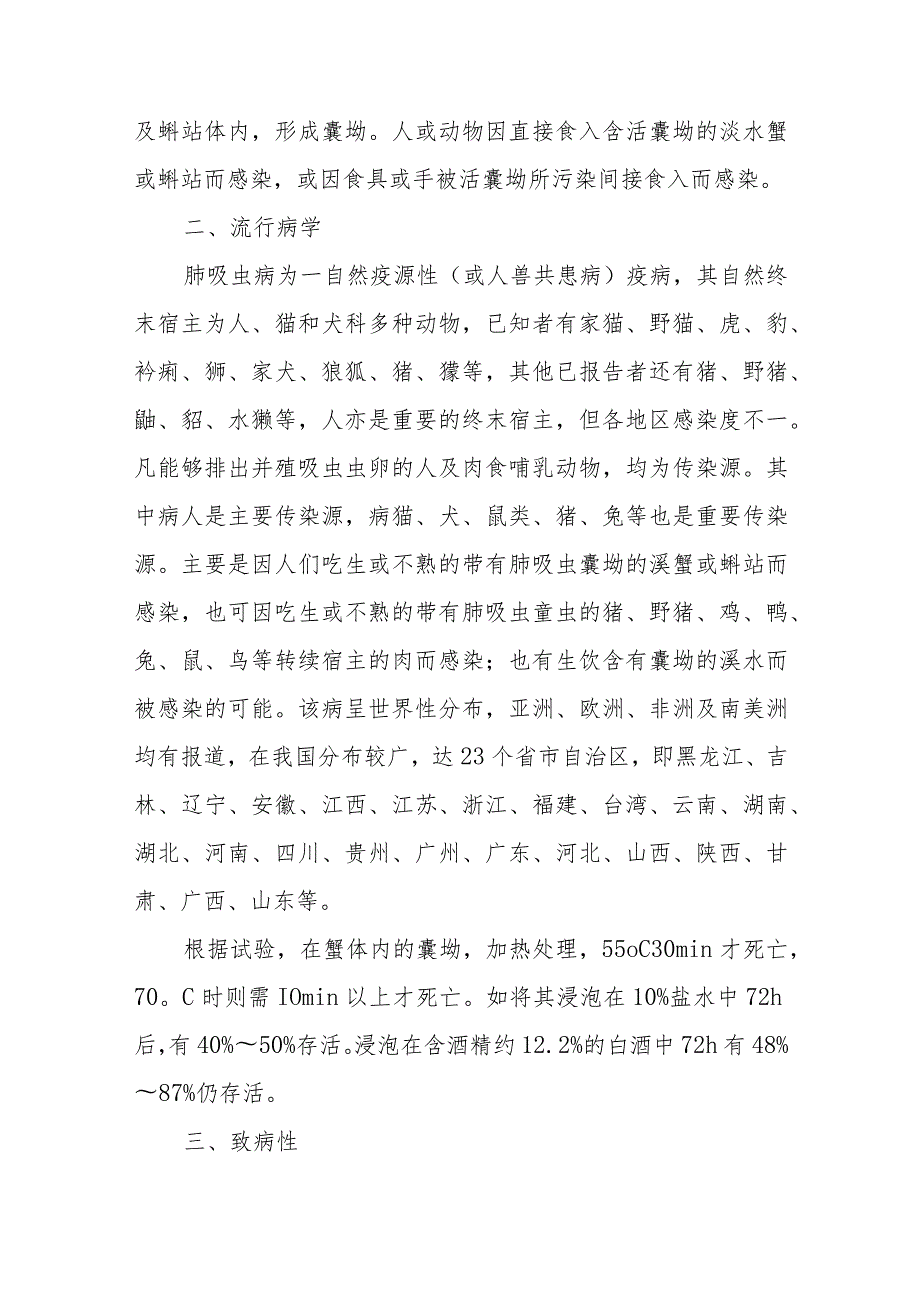 及蝌站体内，形成囊坳。人或动物因直接食入含活囊坳的淡水蟹
或蝌站而感染，或因食具或手被活囊坳所污染间接食入而感染。
二、流行病学
肺吸虫病为一自然疫源性（或人兽共患病）疫病，其自然终
末宿主为人、猫和犬科多种动物，已知者有家猫、野猫、虎、豹、
衿痢、狮、家犬、狼狐、猪、獴等，其他已报告者还有猪、野猪、
鼬、貂、水獭等，人亦是重要的终末宿主，但各地区感染度不一。
凡能够排出并殖吸虫虫卵的人及肉食哺乳动物，均为传染源。其
中病人是主要传染源，病猫、犬、鼠类、猪、兔等也是重要传染
源。主要是因人们吃生或不熟的带有肺吸虫囊坳的溪蟹或蝌站而
感染，也可因吃生或不熟的带有肺吸虫童虫的猪、野猪、鸡、鸭、
兔、鼠、鸟等转续宿主的肉而感染；也有生饮含有囊坳的溪水而
被感染的可能。该病呈世界性分布，亚洲、欧洲、非洲及南美洲
均有报道，在我国分布较广，达 23 个省市自治区，即黑龙江、吉
林、辽宁、安徽、江西、江苏、浙江、福建、台湾、云南、湖南、
湖北、河南、四川、贵州、广州、广东、河北、山西、陕西、甘
肃、广西、山东等。
根据试验，在蟹体内的囊坳，加热处理，55oC30min 才死亡，
70。C 时则需 IOmin 以上才死亡。如将其浸泡在 10%盐水中 72h
后，有 40%～50%存活。浸泡在含酒精约 12.2%的白酒中 72h 有 48%
～87%仍存活。
三、致病性